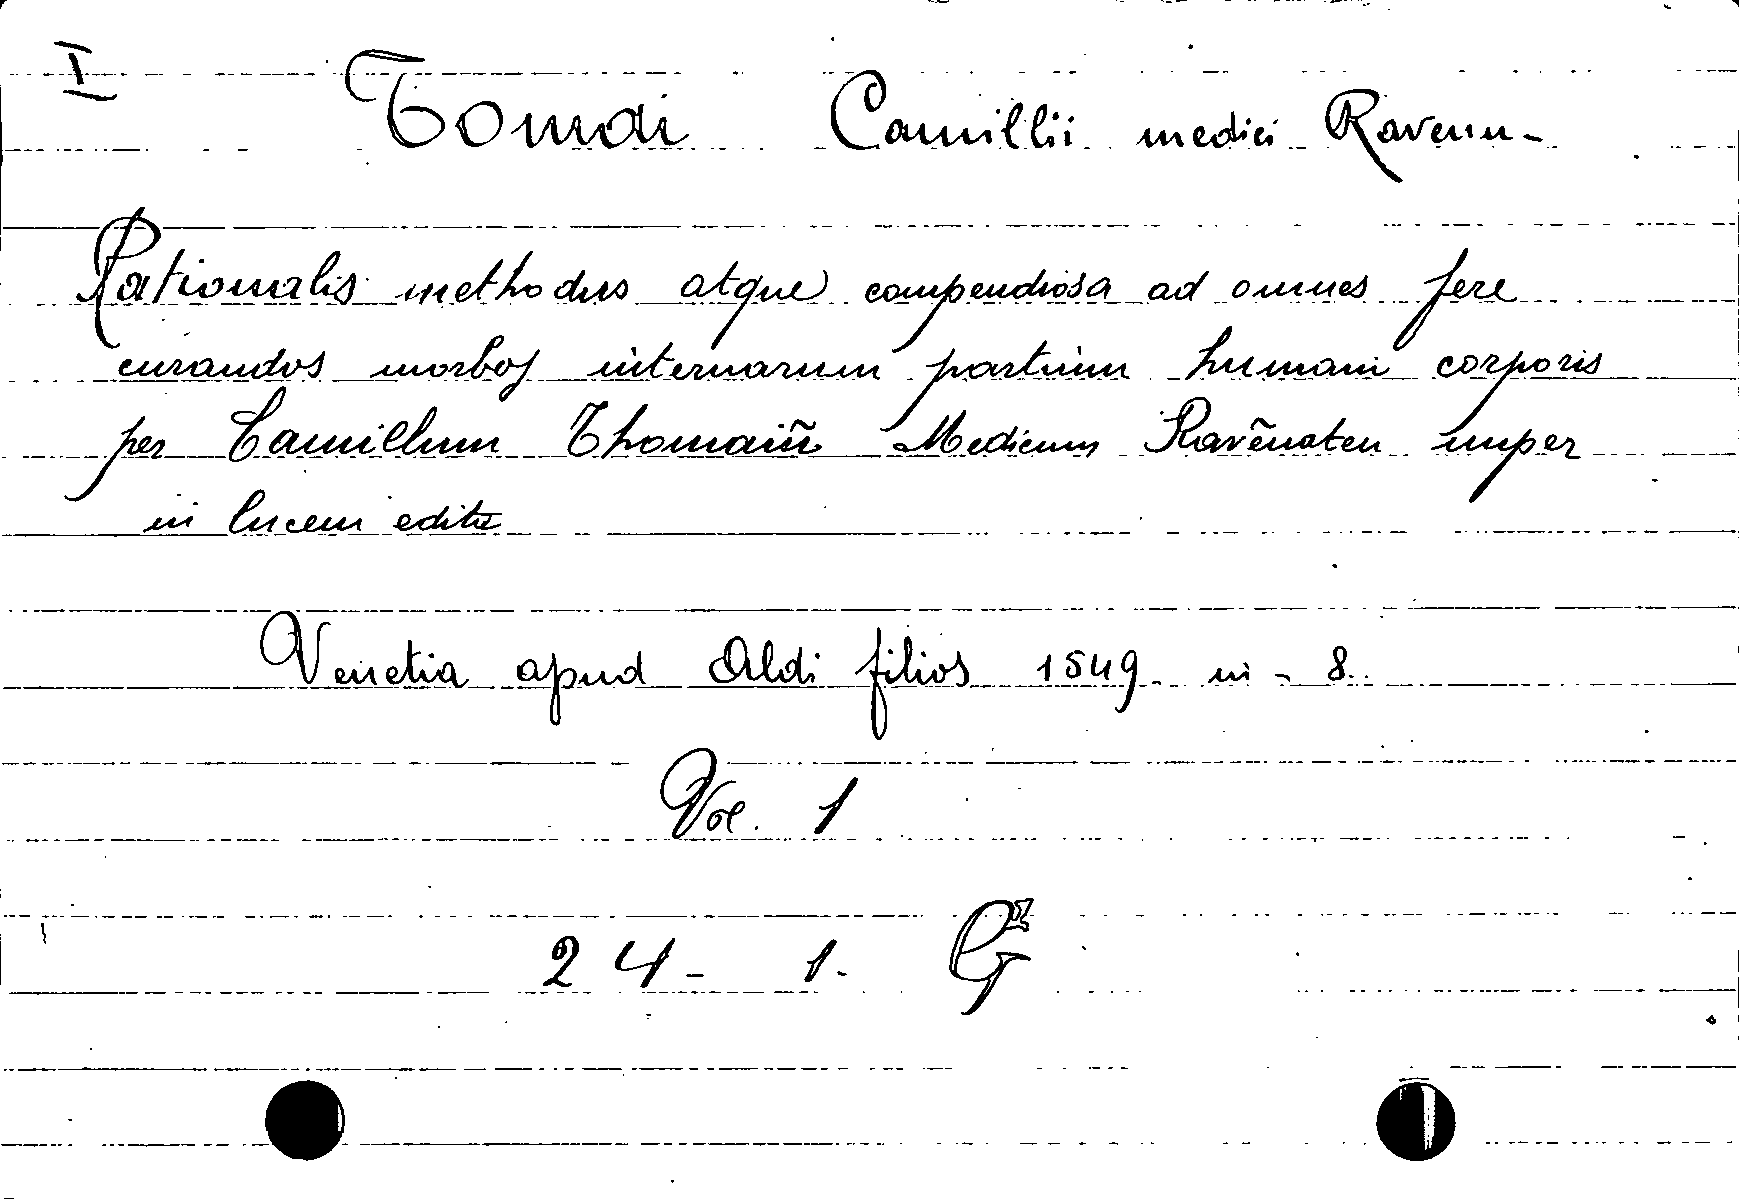 I
Tomai Camillii medici Ravenn-
Rationalis methodus atque compendiosa ad omnes fere
curandos morbos internarum partium humani corporis
per Camillum Thomaiũ Medicum Ravẽnaten nuper
in lucem edita
Venetia apud Aldi filios 1549 in-8.
Vol. 1
24- 1. G